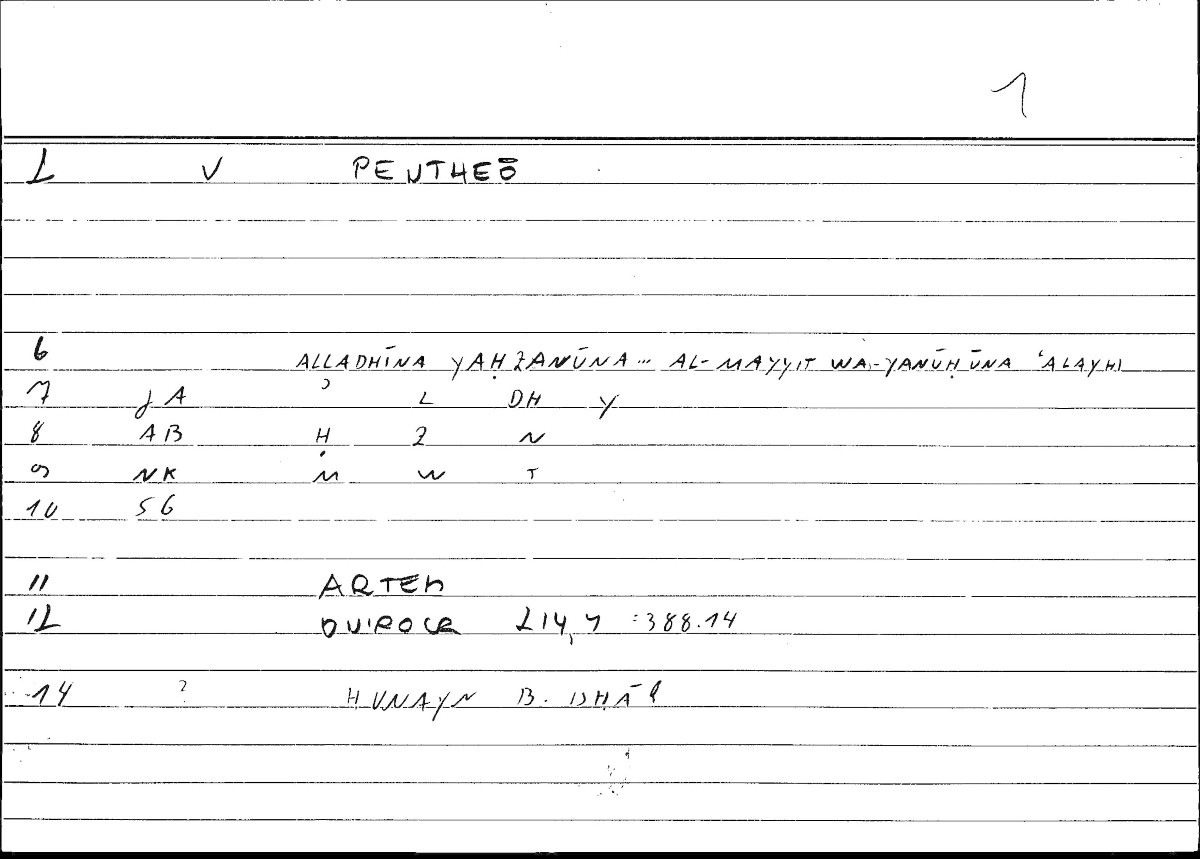 1
L V PENTHEŌ
6 ALLADHĪNA YAḤZANŪNA... AL-MAYYIT WA-YANŪḤŪNA ʿALAYHI
7 JA ʾ L DH Y
8 AB Ḥ Z N
9 NK M W T
10 SG
11 ARTEM
12 ONIROCR 214,7 :388.14
14 ? ḤUNAYN B. ISḤĀQ